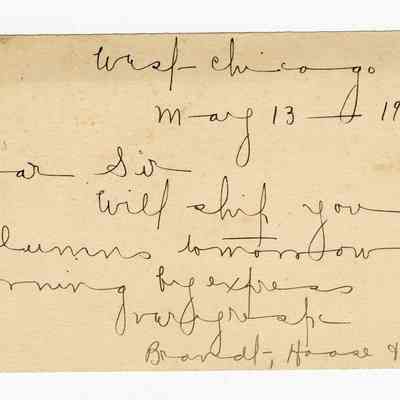 West Chicago
May 13 - 19
ear Sir
Will ship you
lumns tomorrow
rning by express
Very resp
Brandt, Haase &